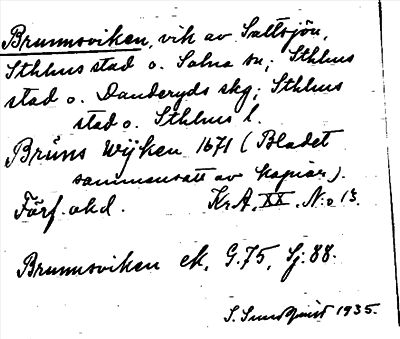 Brunnsviken, vik av Saltsjön,
Sthlms stad o. Solna sn; Sthlms
stad o. Danderyds skg; Sthlms
stad o. Sthlms l.
Brúns Wijken 1671 (Bladet
sammansatt av kopior).
Förf. okd. KrA, XX, N:o 13.
Brunnsviken ek. G.75, Sj.88.
S. Sundquist 1935.